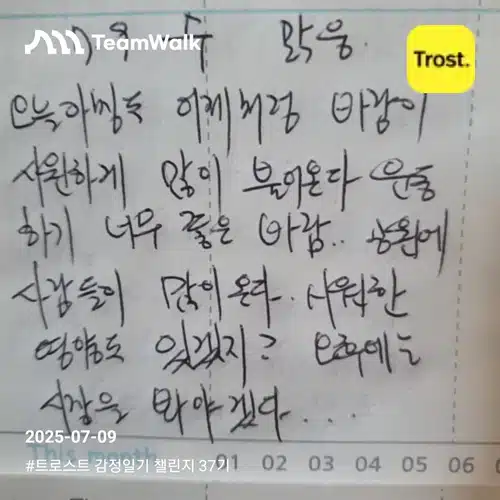 TeamWalk
Trost.
9 수 맑음.
오늘아침도 어제처럼 바람이
시원하게 많이 불어온다 운동
하기 너무 좋은 바람.. 공원에
사람들이 많이 온다.. 시원한
영향도 있겠지? 오후에는
시장을 봐야겠다....
2025-07-09
This month 01 02 03 04 05 06
#트로스트 감정일기 챌린지 37기